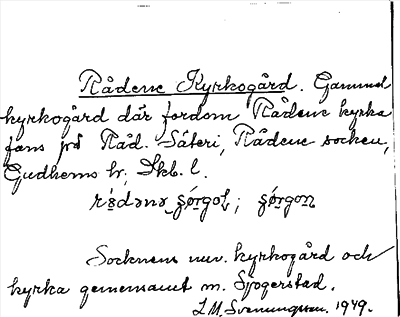 Rådene Kyrkogård. Gammal
kyrkogård där fordom Rådene kyrka
fans på Råd. Säteri, Rådene socken,
Gudhems hr, Skb. l.
Socknens nuv. kyrkogård och
kyrka gemensamt m. Sjogerstad.
L. M. Svenungsson. 1949.